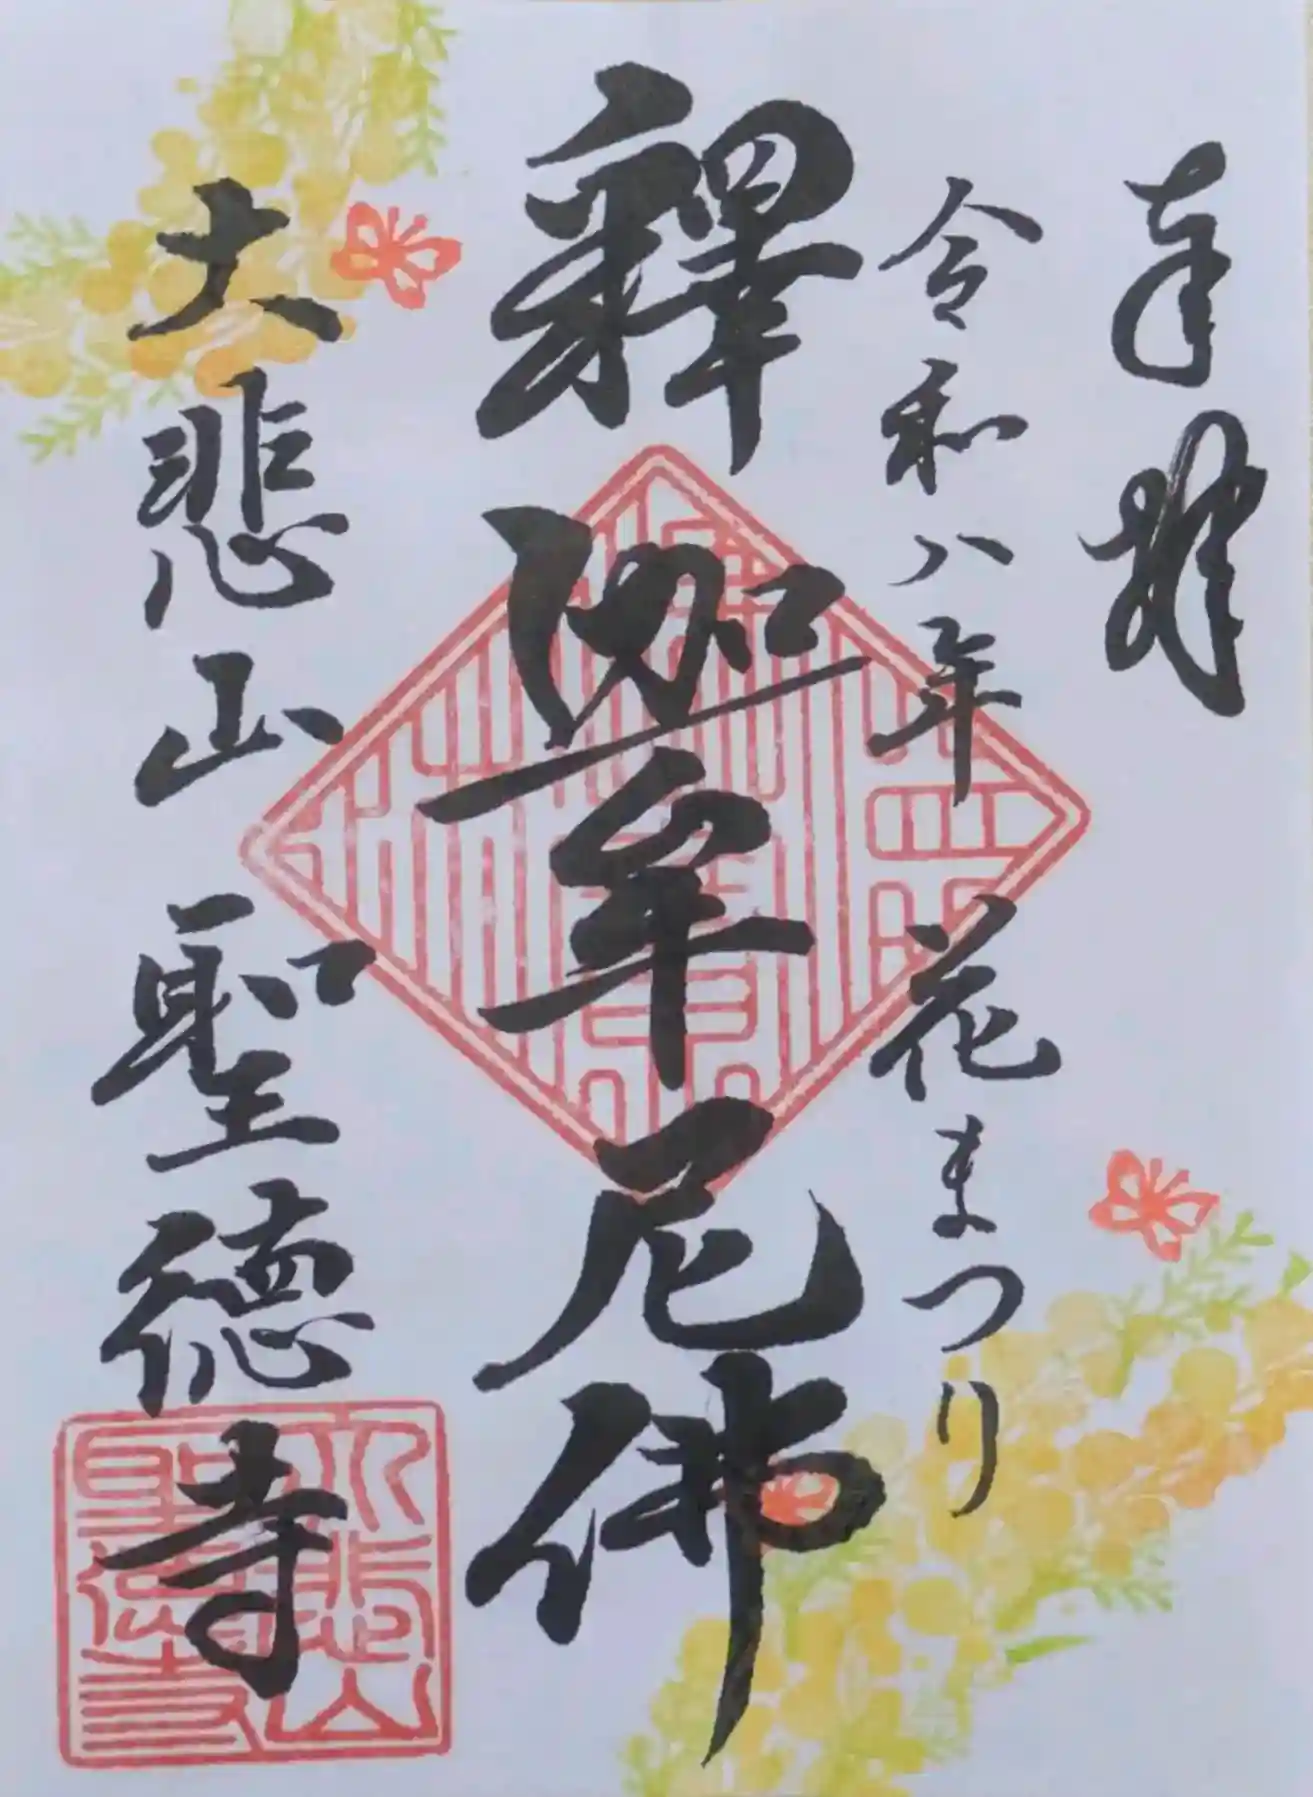 奉拝
令和八年 花まつり
釋伽牟尼佛
大悲山 聖徳寺
大悲山
聖徳寺